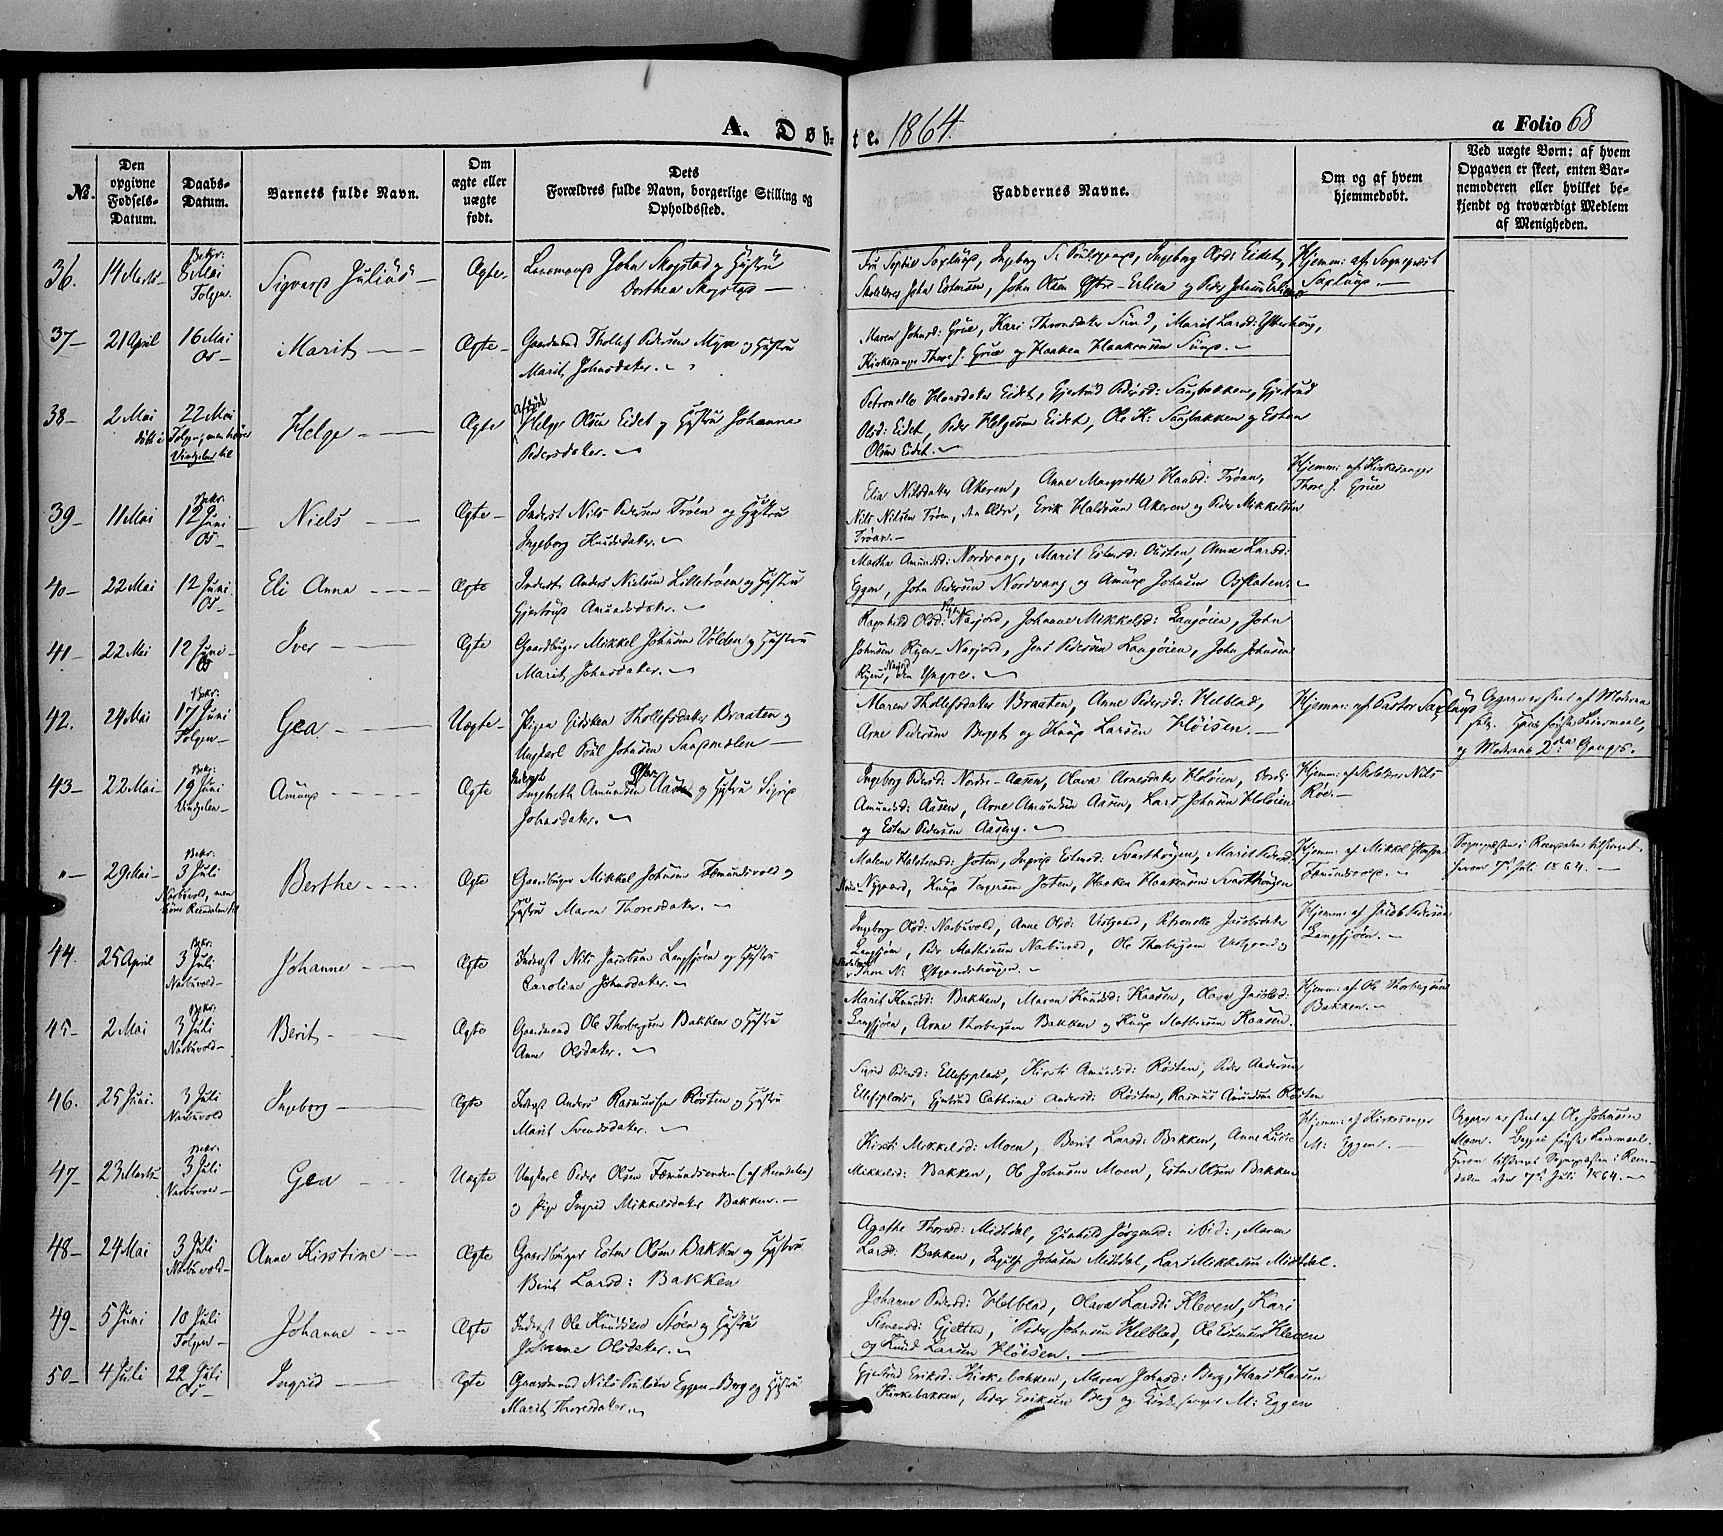 A. Døb-
te. 1864.
a Folio 68
№.
Den opgivne Fødsels-Datum.
Daabs-Datum.
Barnets fulde Navn.
Om ægte eller uægte født.
Dets Forældres fulde Navn, borgerlige Stilling og Opholdssted.
Faddernes Navne.
Om og af hvem hjemmedøbt.
Ved uægte Børn: af hvem Opgaven er skeet, enten Barnemoderen eller hvilket bekjendt og troværdigt Medlem af Menigheden.
36. 14 Marts Bekr: 8 Mai Tolgen Sigvard Julius Ægte Lensmand John Skogstad og Hustru
Dorthea Skogstad
Fru Sophie Saxlund, Ingeborg Olsd: Eidet,
Skolelærer John Estensen, John Olsen Østre-Erlien og Peder Johnsen Erlien
Hjemm: af Sognepræst
Saxlund.
37 21 April 16 Mai Os Marit Ægte Gaardmand Thollef Pedersen Myre og Hustru
Marit Johnsdatter.
Maren Johnsd: Grue, Kari Thronsdatter Sund, Marit Larsd: Ytterhaug,
Kirkesanger Thore J. Grue og Haaken Haakensen Sund.
38 2 Mai 22 Mai Tolgen, men hører Vingelen til Helge Ægte afdød Helge Olsen Eidet og Hustru Johanne
Pedersdatter.
Petronelle Hansdatter Eidet, Gjertrud Pedersd: Sandbakken, Gjertrud
Olsd: Eidet, Peder Helgesen Eidet, Ole H: Sandbakken og Esten
Olsen Eidet.
39 11 Mai Bekr: 12 Juni Os Niels Ægte Inderst Nils Pedersen Trøen og Hustru
Ingeborg Knudsdatter.
Elia Nilsdatter Akeren, Anne Margrethe Trøan,
Nils Nilsen Trøen, den Ældre, Erik Haldosen Akeren og Peder Mikkelsen
Trøan.
Hjemm: af Kirkesanger
Thore J. Grue
40 22 Mai 12 Juni Os Eli Anna Ægte Inderst Anders Nielsen Lilletrøen og Hustru
Gjertrud Amundsdatter.
Martha Amundsd: Nordvang, Marit Estensd: Ousten, Anne Larsd:
Eggen, John Pedersen Nordvang og Amund Johnsen Osfloten.
41 22 Mai 12 Juni Os Iver Ægte Gaardbruger Mikkel Johnsen Volden og Hustru
Marit Johnsdatter.
Ragnhild Olsd: Ryen Narjord, Johanne Mikkelsd: Langøien, John
Johnsen Ryen-Narjord, Jens Pedersen Langøien, John Johnsen
Ryen Narjord, den Yngre.
42. 24 Mai Bekr: 17 Juni Tolgen Gea Uægte Pigen Gidsken Thollefsdatter Braaten og
Ungkarl Poul Johnsen Sandmælen
Maren Thollefsdatter Braaten, Anne Pedersd: Helblad,
Arne Pedersen Berget og Knud Larsen Kløisen.
Hjemm: af Pastor Saxlund
Opgaven er skeet af Moderen
og Moderens 2den Gangs.
43 22 Mai Bekr: 19 Juni Vingelen Amund Ægte Inderst
Ingebreth Amundsen Aasen og Hustru Sigrid
Johnsdatter.
Ingeborg Pedersd: Nordre-Aasen, Olava Arnesdatter Holøien,
Amundsd: Aasen, Arne Amundsen Aasen, Lars Johnsen Holøien
og Esten Pedersen Aaseng.
Hjemm: af Skolelærer Nils
Røe.
" 29 Mai Bekr: 3 Juli Narbuvold, men hører Rendalen til Berthe Ægte Gaardbruger Mikkel Johnsen Fæmundsvold og
Hustru Maren Thoresdatter.
Malene Halstensd: Joten, Ingrid Estensd: Svarthougen, Marit Pedersd:
Nygaard, Knud Joten, Haaken Haakensen Svarthougen
Hjemm: af Mikkel
Fæmundsvold.
Sognepræsten i Rendalen tilskrevet
herom 7de Juli 1864.
44. 25 April Bekr: 3 Juli Narbuvold Johanne Ægte Inderst Nils Jacobsen Langsjøen og Hustru
Caroline Johnsdatter.
Ingeborg Olsd: Narbuvold, Anne Olsd: Vestgaard, Petronelle Jacobsdatter
Langsjøen, Peder Mathiesen Narbuvold, Ole Thorbergsen Vestgaard og
Hjemm: af Jacob Pedersen
Langsjøen.
45 2 Mai Bekr: 3 Juli Narbuvold Berit Ægte Gaardmand Ole Thorbergsen Bakken og Hustru
Anne Olsdatter.
Marit Knudsd: Bakken, Maren Knudsd: Kaasen, Olava Jacobsd:
Langsjøen, Arne Thorbergsen Bakken og Knud Mathiesen Kaasen.
Hjemm: af Ole Thorbergsen
Bakken.
46. 25 Juni. 3 Juli Narbuvold Ingeborg Ægte Inderst Anders Rasmussen Røsten og Hustru
Marit Svendsdatter.
Sigrid Pedersd: Ellefsplads, Kirsti Amundsd: Røsten, Peder Andersen
Ellefsplads, Gjertrud Cathrine Andersd: Røsten, Rasmus Amundsen Røsten
47 23 Marts Bekr: 3 Juli Narbuvold Gea Uægte Ungkarl Peder Olsen Fæmundsenden (af Rendalen)
og Pige Ingrid Mikkelsdatter Bakken.
Kirsti Mikkelsd: Moen, Berit Larsd: Bakken, Anne Lusie
Mikkelsd: Bakken, Ole Johnsen Moen, Esten Olsen Bakken
Hjemm: af Kirkesanger
M: Eggen.
Opgaven er skeet af Ole Johnsen
Moen. Begges første Leiermaal.
Herom tilskrevet Sognepræsten i Ren-
dalen den 7de Juli 1864.
48 24 Mai 3 Juli Narbuvold Anne Kirstine Ægte Gaardbruger Esten Olsen Bakken og Hustru
Berit Larsd: Bakken
Agathe Thoresd: Midtdal, Gunhild Jørgensd: ibid:, Maren
Larsd: Bakken, Johnsen Midtdal, Lars Mikkelsen Midtdal.
49 5 Juni 10 Juli Tolgen Johanne Ægte Inderst Ole Knudsen Støen og Hustru
Johanne Olsdatter.
Johanne Pedersd: Helblad, Olava Larsd: Kleven, Kari
Simensd: Gjetten, Peder Johnsen Helblad, Ole Estensen Kleven
og Knud Larsen Kløisen.
50 4 Juli 22 Juli Os Ingrid Ægte Gaardmand Nils Poulsen Eggen-Berg og Hustru
Marit Thoresdatter.
Gjertrud Eriksd: Kirkebakken, Maren Johnsd: Berg, Hans Hansen
Kirkebakken, Peder Eriksen Berg og Kirkesanger M: Eggen